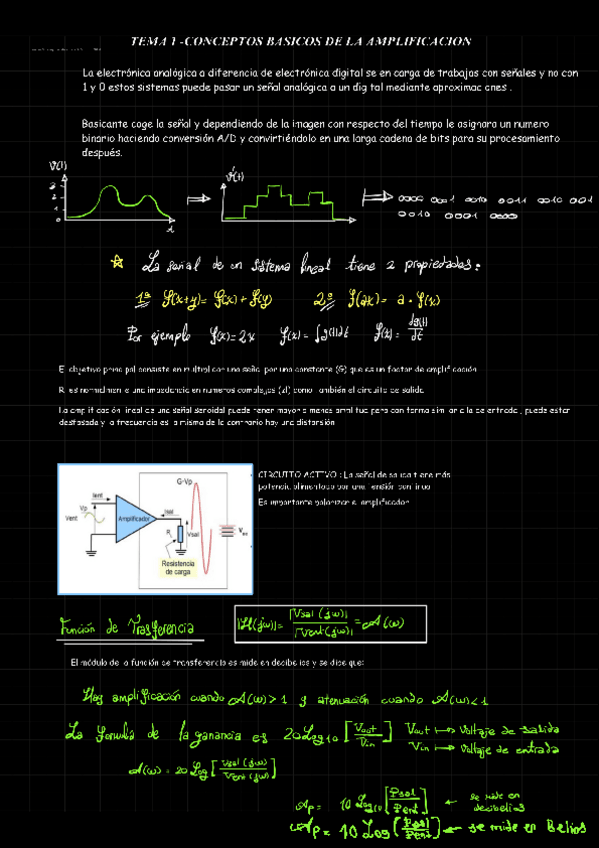 TEMA 1 -CONCEPTOS BASICOS DE LA AMPLIFICACION
La electrónica analógica a diferencia de electrónica digital se en carga de trabajas con señales y no con
1 y 0 estos sistemas puede pasar un señal analógica a un digital mediante aproximaciones .
Basicante coge la señal y dependiendo de la imagen con respecto del tiempo le asignara un numero
binario haciendo conversión A/D y convirtiéndolo en una larga cadena de bits para su procesamiento
después.
V(t)
3
2
1
0
t
V(t)
0000 0001 0010 0011 010 001
0010 0001 0000
La señal de un sistema lineal tiene 2 propiedades:
1ª f(x+y)= f(x) + f(y) 2ª f(ax) = a · f(x)
Por ejemplo f(x)=2x f(x)=∫g(t)dt f(x)= dg(t)/dt
El objetivo principal consiste en multiplicar una señal por una constante (G) que es un factor de amplificación
RL es normalmente una impedancia en números complejos (Zl) como también el circuito de salida
La amplificación lineal de una señal senoidal puede tener mayor o menos amplitud pero con forma similar a la de entrada , puede estar
desfasada y la frecuencia es la misma de lo contrario hay una distorsión
G·Vp
Ient
Vp
Vent
Amplificador
Isal
RL
Vsal
Vcc
Resistencia
de carga
CIRCUITO ACTIVO : La señal de salida tiene más
potencia alimentada por una tensión continua
Es importante polarizar el amplificador
Función de Trasferencia
|H(jω)|= |Vsal (jω)| / |Vent (jω)| = A(ω)
El módulo de la función de transferencia es mide en decibelios y se dice que:
Hay amplificación cuando A(ω)>1 y atenuación cuando A(ω)<1
La formula de la ganancia es 20Log10 [Vout / Vin] Vout ↦ Voltaje de salida
Vin ↦ Voltaje de entrada
A(ω) = 20 Log [Vsal (jω) / Vent (jω)]
Ap = 10 Log10 [Psal / Pent] ← se mide en decibelios
Ap = 10 Log [Psal / Pent] ← se mide en Belios